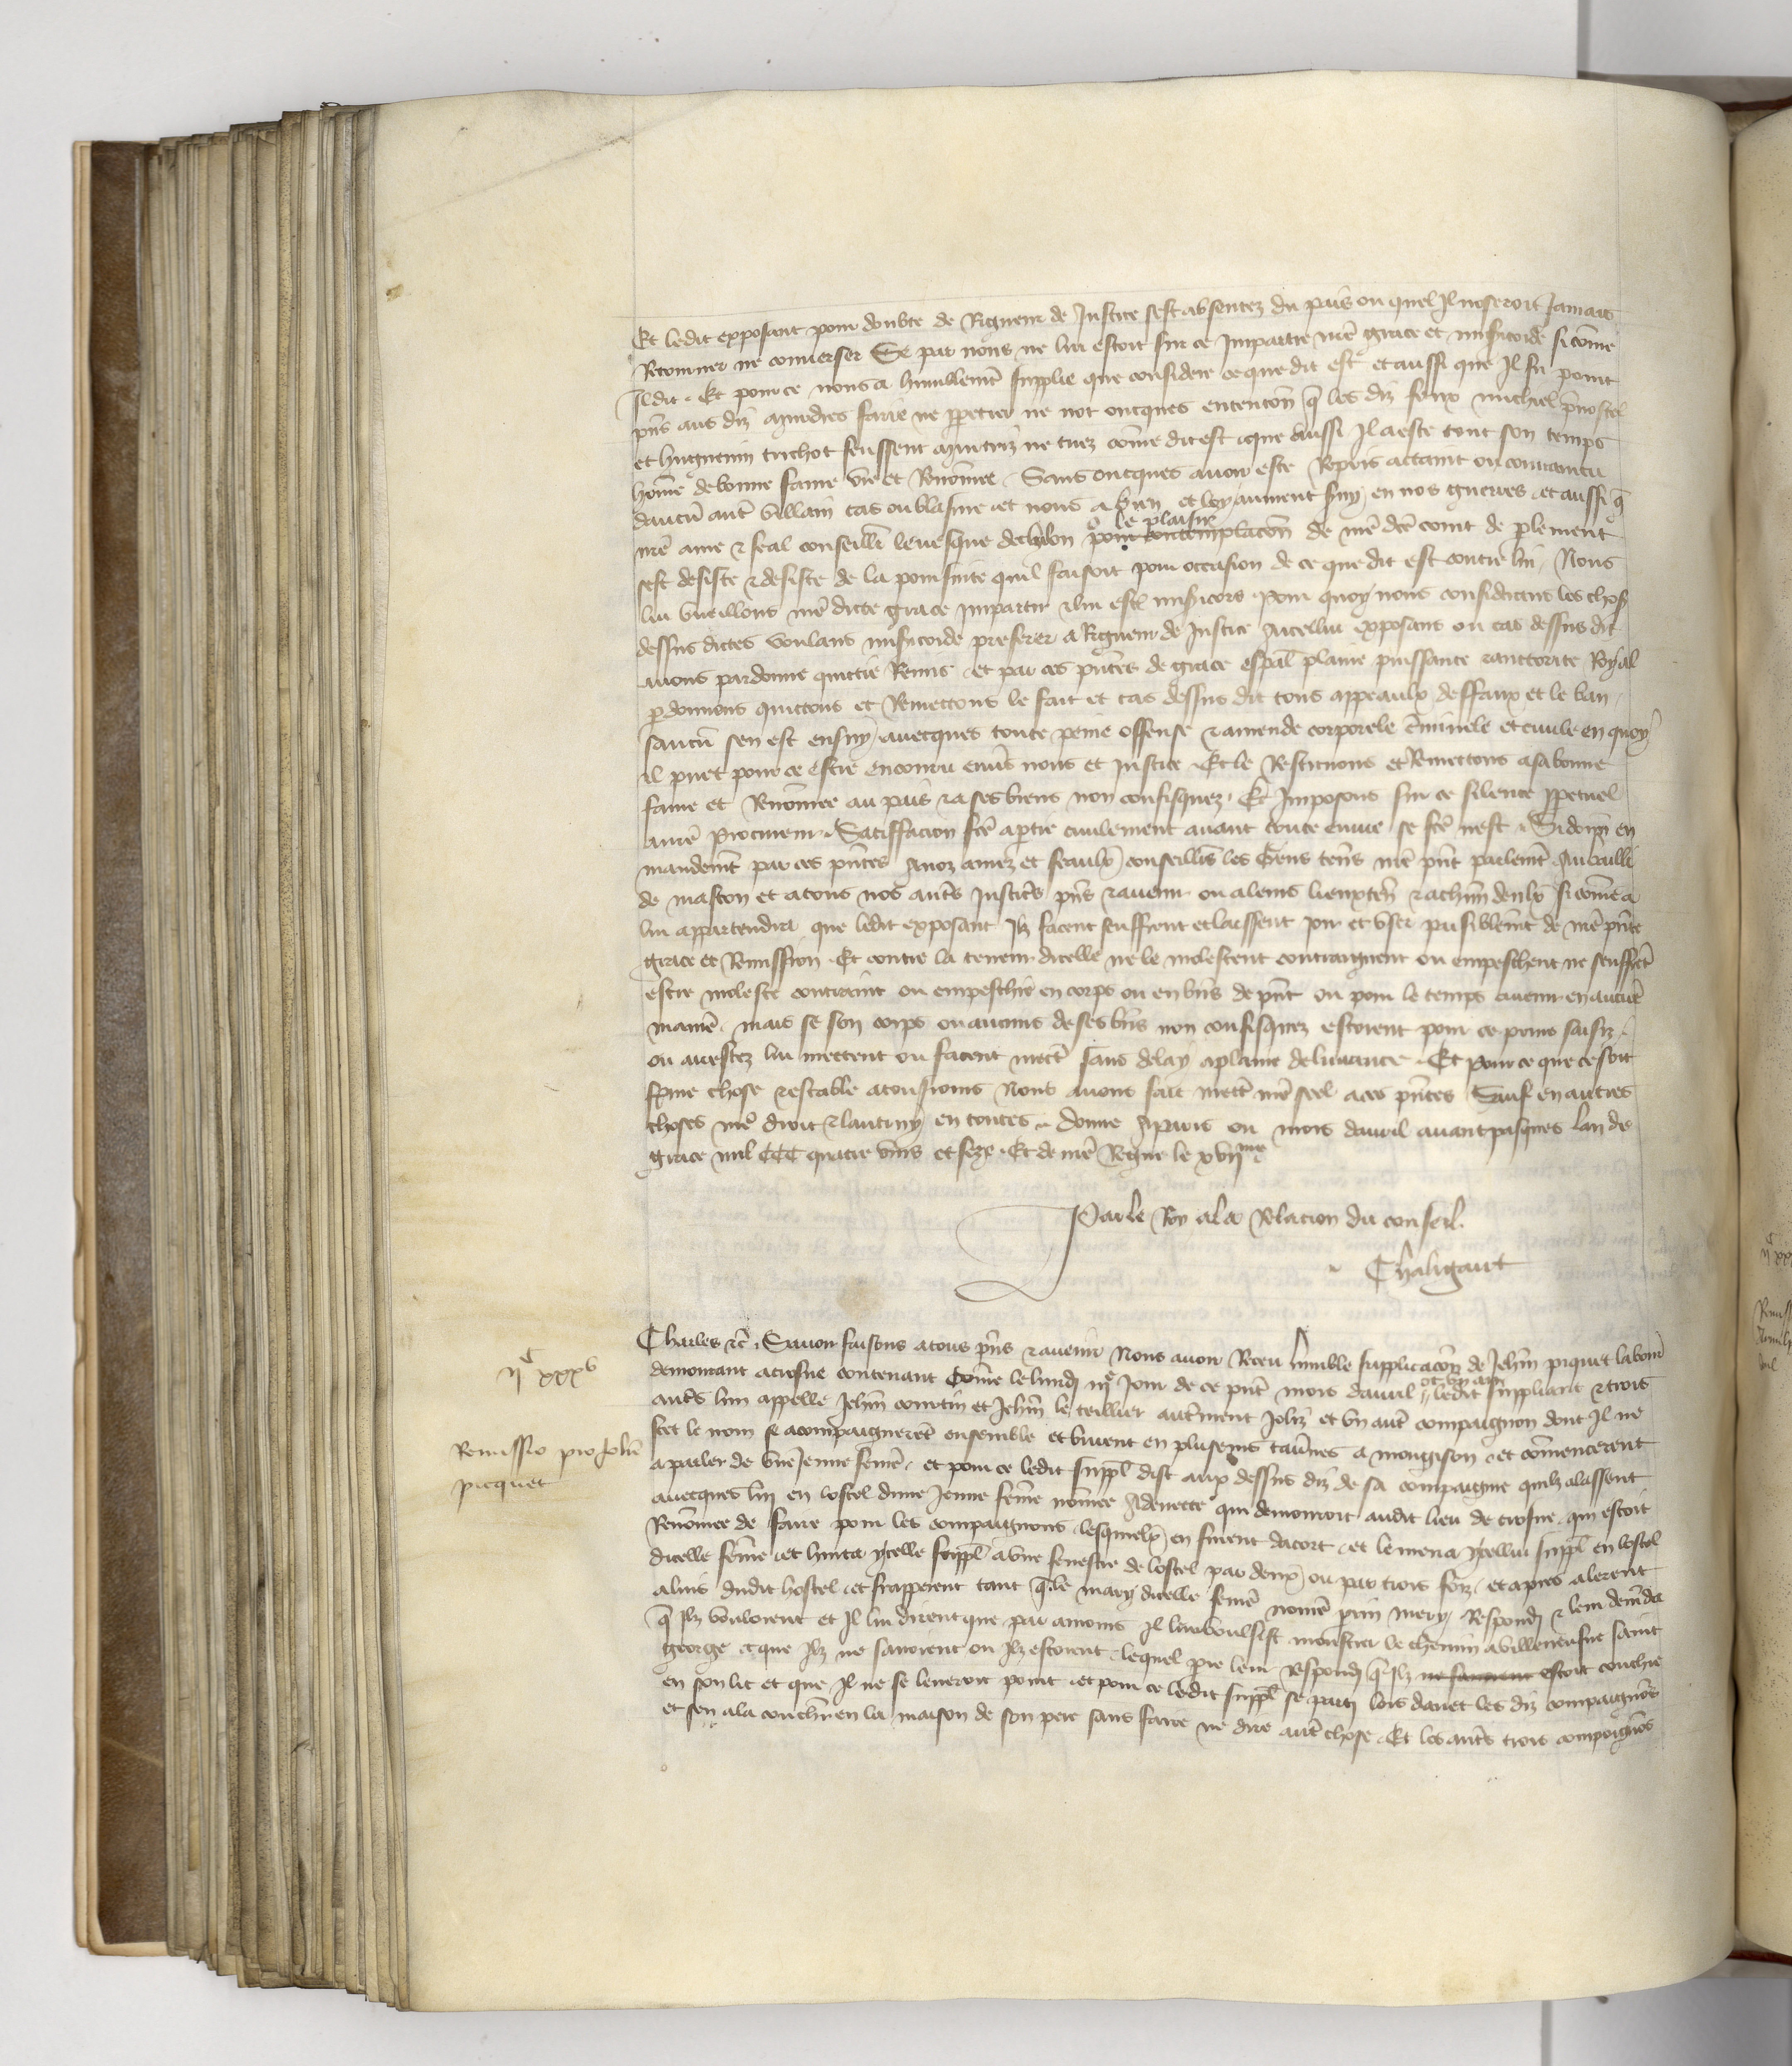 Et ledit exposant pour doubte de Rigueur de Justice sest absentez du pais ou quel Il noseroit Jamais
Retourner ne converser Se par nous ne lui estoit sur ce Impartie nre grace et misicorde si come
Il dit. Et pour ce nous a humblemt supplie que considere ce que dit est et aussi que Il fu point
pns aus diz murdres faire ne ppetrer ne not oncques entencon q les diz feux michiel
et huguenin trichot feussent murtriz ne tuez come dit est et que aussi Il a este tout son temps
home de bonne fame vie et Renomee. Sans oncques avoir este Repris attaint ou convaincu
daucun aute villain cas ou blasme et nous a bien et loyaument suy en nos guerres et aussi q
nre ame & feal conseillr levesque de chalon pour contemplacon le plaisir de nre dce court de plement
sest desiste & desiste de la poursuite quil faisoit pour occasion de ce que dit est contre lui, Nous
lui vueillons nre dicte grace impartir & lui estre misicors. Pour quoy nous considerans les choses
dessus dictes voulans misicorde preferer a Rigueur de Justice Aicellui exposant ou cas dessus dit
avons pardonne quictie Remis et par ces pntes de grace espal plaine puissance & auctorite Royal
pdonnons quictons et Remettons le fait et cas dessus dit tous appeaulx deffaux et le ban
saucun sen est ensuy avecques toute peine offense & amende corporele criminele et civile en quoy
il puet pour ce estre encouru envs nous et Justice. Et le Restituons et Remettons a sa bonne
fame et Renomee au pais & a ses biens non confisquez. Et Imposons sur ce silence ppetuel
a nre Procureur. Satiffacion fte a ptie civilement avant toute euvre se fte nest. Si donn en
mandemt par ces pntes Anoz amez et feaulx conseillrs les Gens tens nre pnt parlemt Au bailli
de mascon et a tous nos autres Justiciers pns & avenir ou a leurs lieuxten & a chun deulx si come a
lui appartendra que ledit exposant Ilz facent seuffrent et laissent joir et user paisiblemt de nre pnte
grace et Remission. Et contre la teneur dicelle ne le molestent contraignent ou empeschent ne seuffrt
estre moleste contraint ou empeschie en corps ou en biens de pnt ou pour le temps avenir en aucune
maniere. mais se son corps ou aucuns de ses biens non confisquez estoient pour ce prins saisiz
ou arrestez lui mettent ou facent mett sans delay a plaine delivrance. Et pour ce que ce soit
ferme chose & estable a tousiours Nous avons fait mett nre seel a ces pntes Sauf en autres
choses nre droit & lautruy en toutes. Donne a paris ou mois davril avant pasques lan de
grace mil CCC quatre vins et seze. Et de nre Regne le xvijme
Par le Roy a la Relacion du conseil.
Chaligaut
ijC xxxv
Charles &c. Savoir faisons a tous pns & avenir Nous avoir Receu humble supplicacon de Jehan piquet labour
demourant a crosne contenant Come le lundi iije Jour de ce pnt mois davril ledit suppliant & trois
auts lun appelle Jehan courtin et Jehan le teillier autrement Joliz et un aut compaignon dont Il ne
scet le nom se acompaigneret ensemble et burent en pluseurs tavnes a mongison et comencerent
Remissio pro Johe
picquet
a parler de une Jeune feme, et pour ce ledit suppl dist aux dessus diz de sa compaignie quilz alassent
avecques lui en lostel dune Jeune feme nomee Adenette qui demouroit audit lieu de crosne, qui estoit
Renomee de faire pour les compaignons lesquelx en furent dacort et le mena ycellui suppl en lostel
dicelle feme et hurta ycelle suppl a une fenestre de lostel par deux ou par trois foiz, et apres alerent
a luis dudit hostel et frapperent tant q le mary dicelle feme nome prin mery, Respondi & leur demda
q Ilz vouloient et Il lui dirent que par amours Il leur voulsist monstrer le chemin a villeneufve saint
george et que Ilz ne savoient ou Ilz estoient. lequel prin leur Respondi q Ilz ne savoient estoit couchie
en son lit et que Il ne se leveroit point et pour ce ledit suppl se parti lors davec les diz compaignos
et sen ala couchier en la maison de son pere sans faire ne dire aute chose. Et les auts trois compaignos